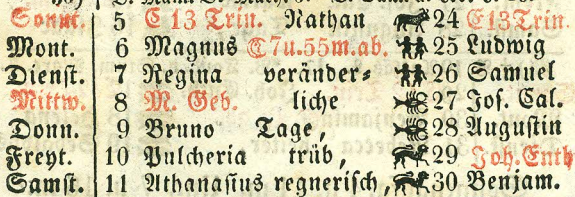 Sonnt. 5 E 13 Trin. Nathan 24 E 13 Trin.
Mont. 6 Magnus C 7 u. 55 m. ab. 25 Ludwig
Dienst. 7 Regina veränder= 26 Samuel
Mittw. 8 M. Geb. liche 27 Jos. Cal.
Donn. 9 Bruno Tage, 28 Augustin
Freyt. 10 Pulcheria trüb, 29 Joh. Enth
Samst. 11 Athanasius regnerisch, 30 Benjam.